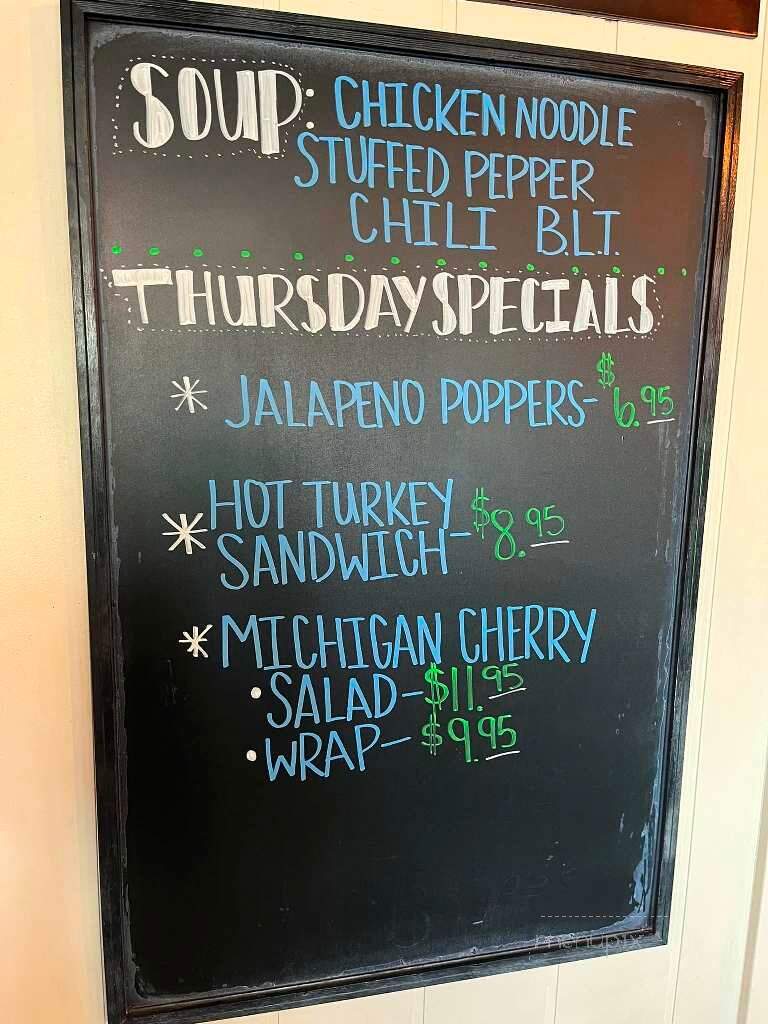 SOUP: CHICKEN NOODLE
STUFFED PEPPER
CHILI B.L.T.
THURSDAY SPECIALS
* JALAPENO POPPERS- $6.95
* HOT TURKEY
SANDWICH- $8.95
* MICHIGAN CHERRY
• SALAD- $11.95
• WRAP- $9.95
menupix